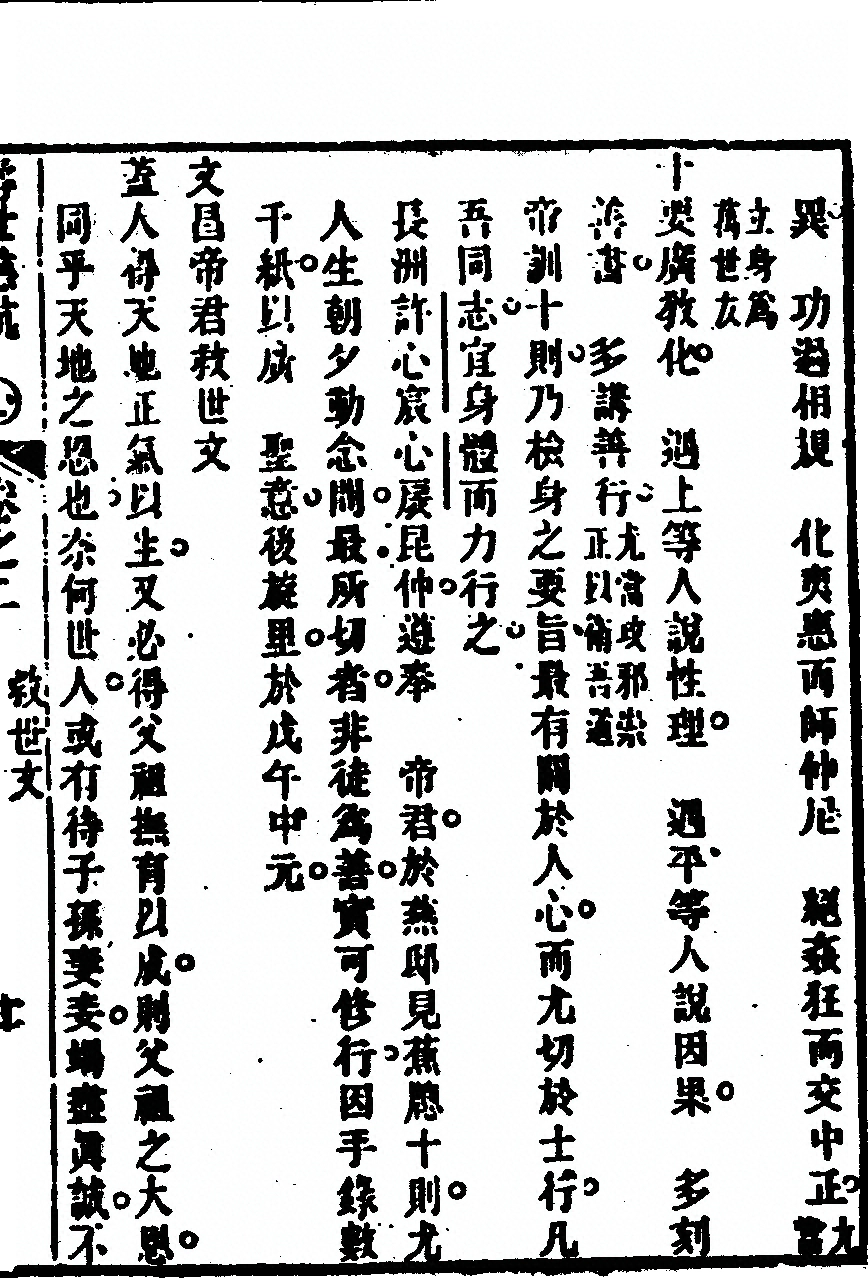 異　功過相規　化夷惠而師仲尼　絕姦狂而交中正尤當
立身爲萬世友
十要廣教化　遇上等人說性理　遇平等人說因果　多刻
善書　多講善行尤當攻邪崇正以衛吾道
帝訓十則乃檢身之要旨最有關於人心而尤切於士行凡
吾同志宜身體而力行之
長洲許心宸心扆昆仲遵奉　帝君於燕邸見蕉窗十則尤
人生朝夕動念間最所切者非徒爲善實可修行因手錄數
千紙以廣　聖意後旋里於戊午中元
文昌帝君救世文
蓋人得天地正氣以生又必得父祖撫育以成則父祖之大恩
同乎天地之恩也奈何世人或有待子孫妻妾竭盡眞誠不
救世文